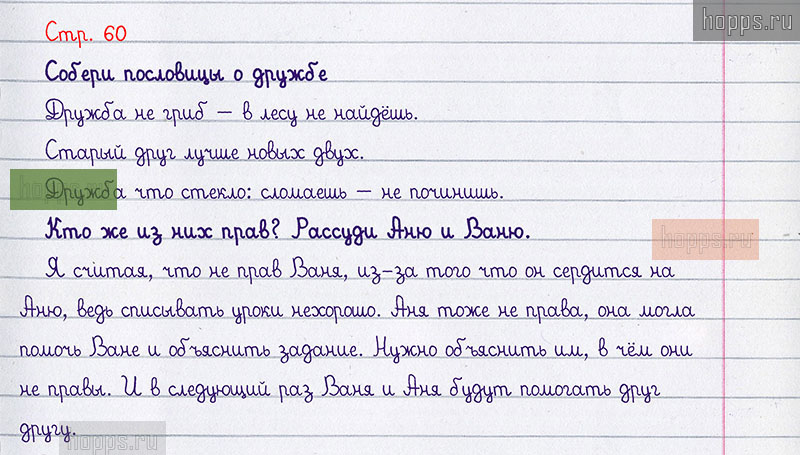 hopps.ru
Стр. 60
Собери пословицы о дружбе
Дружба не гриб – в лесу не найдёшь.
Старый друг лучше новых двух.
hopps.ru
Дружба что стекло: сломаешь – не починишь.
Кто же из них прав? Рассуди Аню и Ваню.
hopps.ru
Я считая, что не прав Ваня, из-за того что он сердится на
Аню, ведь списывать уроки нехорошо. Аня тоже не права, она могла
помочь Ване и объяснить задание. Нужно объяснить им, в чём они
не правы. И в следующий раз Ваня и Аня будут помогать друг
другу.
hopps.ru